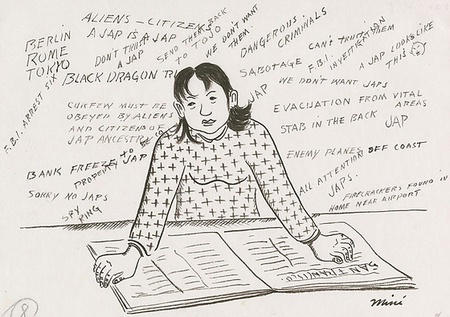 BERLIN
ROME
TOKYO
ALIENS - CITIZENS
A JAP IS A JAP
DON'T TRUST
A JAP
SEND THEM BACK
TO TOJO
WE DON'T WANT
THEM!
DANGEROUS
CRIMINALS
CAN'T TRUST
F.B.I. INVESTIGATION
A JAP LOOKS LIKE
THIS
F.B.I. ARREST SIX
BLACK DRAGON
SABOTAGE
WE DON'T WANT JAPS
JAP
CURFEW MUST BE
OBEYED BY ALIENS
AND CITIZENS OF
JAP ANCESTRY
EVACUATION FROM VITAL
AREAS
STAB IN THE BACK
JAP
BANK FREEZE JAP
PROPERTY
TO BE
ENEMY PLANES OFF COAST
SORRY NO JAPS
SPY
RING
ALL ATTENTION
JAPS.
FIRECRACKERS FOUND IN
HOME NEAR AIRPORT
SAN FRANCISCO
Miné
8